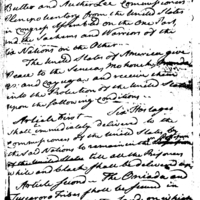 Butler and Arthur Lee Commissioners
Plenipotentiary from the United States
in Congress assembled on the one Part,
and the Sachems and Warriors of the
Six Nations on the Other
The United States of America give
Peace to the Senecas, Mohawks,
and Cayugas and receive them
into the Protection of the United States
upon the following Conditions
Article First Six Hostages
shall immediately delivered to the
Commissioners of the United States by
the said Nations to remain in
of the United States till all the Prisoners
white and black shall be delivered
Article Second The Oneida and
Tuscarora Tribes shall be secured in
on which